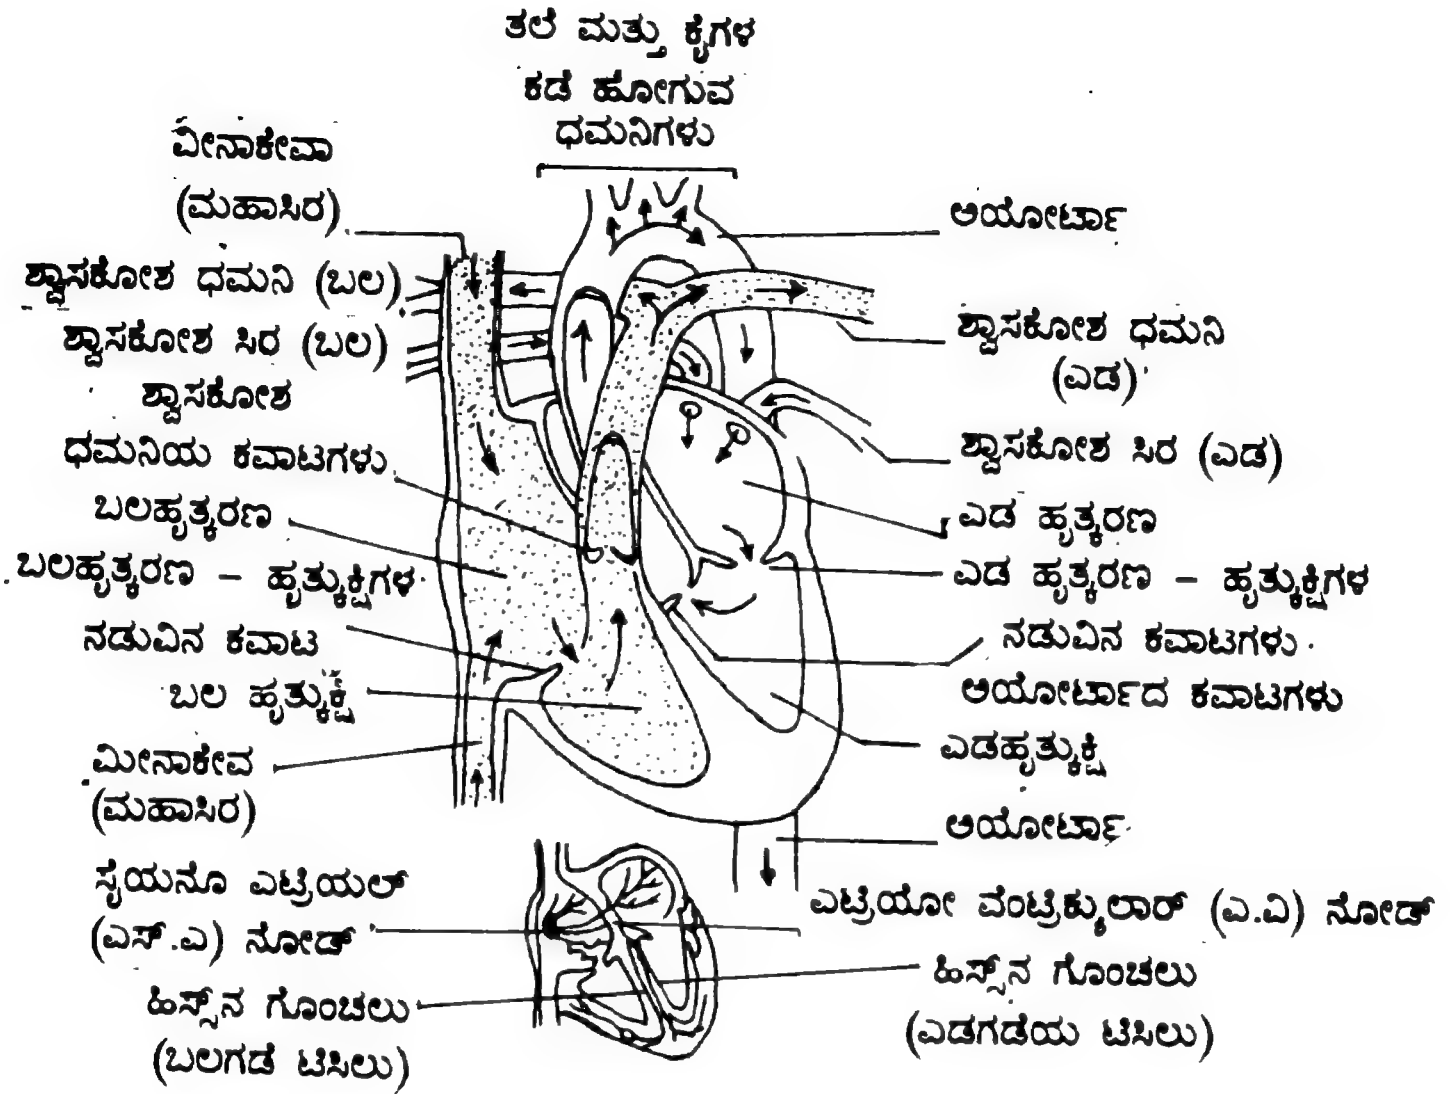 ತಲೆ ಮತ್ತು ಕೈಗಳ
ಕಡೆ ಹೋಗುವ
ಧಮನಿಗಳು
ವೀನಾಕೇವಾ
(ಮಹಾಸಿರ)
ಶ್ವಾಸಕೋಶ ಧಮನಿ (ಬಲ)
ಶ್ವಾಸಕೋಶ ಸಿರ (ಬಲ)
ಶ್ವಾಸಕೋಶ
ಧಮನಿಯ ಕವಾಟಗಳು
ಬಲಹೃತ್ಕರಣ
ಬಲಹೃತ್ಕರಣ – ಹೃತ್ಕುಕ್ಷಿಗಳ
ನಡುವಿನ ಕವಾಟ
ಬಲ ಹೃತ್ಕುಕ್ಷಿ
ಮೀನಾಕೇವ
(ಮಹಾಸಿರ)
ಸೈಯನೊ ಎಟ್ರಿಯಲ್
(ಎಸ್.ಎ) ನೋಡ್
ಹಿಸ್ಸ್‌ನ ಗೊಂಚಲು
(ಬಲಗಡೆ ಟಿಸಿಲು)
ಅಯೋರ್ಟಾ
ಶ್ವಾಸಕೋಶ ಧಮನಿ
(ಎಡ)
ಶ್ವಾಸಕೋಶ ಸಿರ (ಎಡ)
ಎಡ ಹೃತ್ಕರಣ
ಎಡ ಹೃತ್ಕರಣ – ಹೃತ್ಕುಕ್ಷಿಗಳ
ನಡುವಿನ ಕವಾಟಗಳು
ಅಯೋರ್ಟಾದ ಕವಾಟಗಳು
ಎಡಹೃತ್ಕುಕ್ಷಿ
ಅಯೋರ್ಟಾ
ಎಟ್ರಿಯೋ ವೆಂಟ್ರಿಕ್ಯುಲಾರ್ (ಎ.ವಿ) ನೋಡ್
ಹಿಸ್ಸ್‌ನ ಗೊಂಚಲು
(ಎಡಗಡೆಯ ಟಿಸಿಲು)